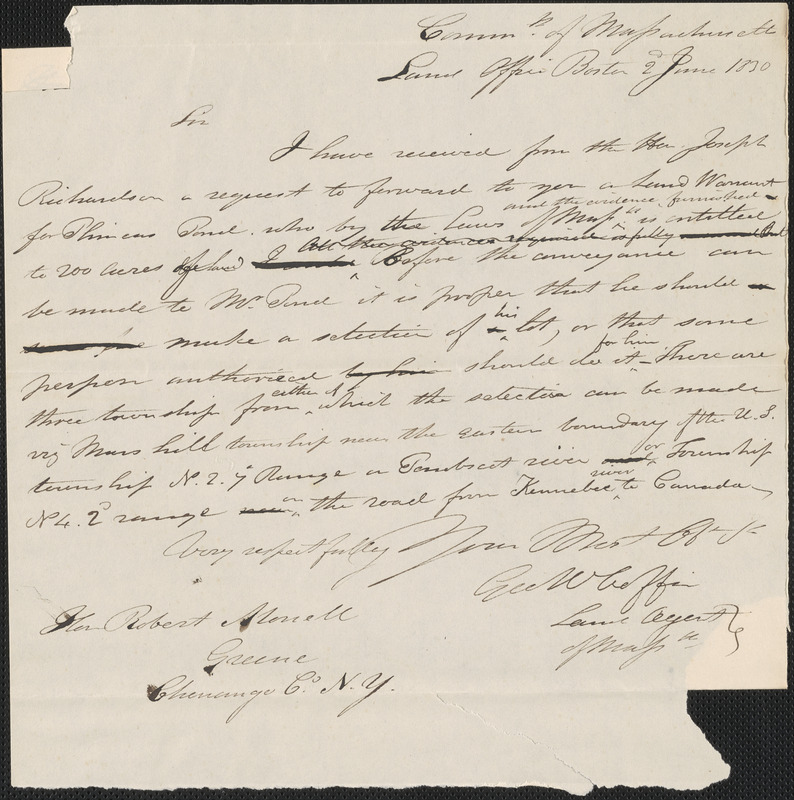 Commth of Massachusetts
Land Office Boston 2d June 1830
Sir
I have received from the Hon. Joseph
Richardson a request to forward to you a Land Warrant
for Phineas Pond. who by the Laws of Mass.tts and the evidence furnished is entitled
to 200 acres of land Before the conveyance can
be made to Mr. Pond it is proper that he should
make a selection of his lot, or that some
person authorized by him should do it for him - There are
three township from either of which the selection can be made
viz Mars hill township near the eastern boundary of the U.S.
township No. 2. 7 Range on Penobscot river or Township
No 4. 2d range on the road from Kennebec river to Canada
Very respectfully Your Most Obt St
Geo W Coffin
Land Agent
of Masstts
Hon Robert Monell
Greene
Chenango Co. N.Y.